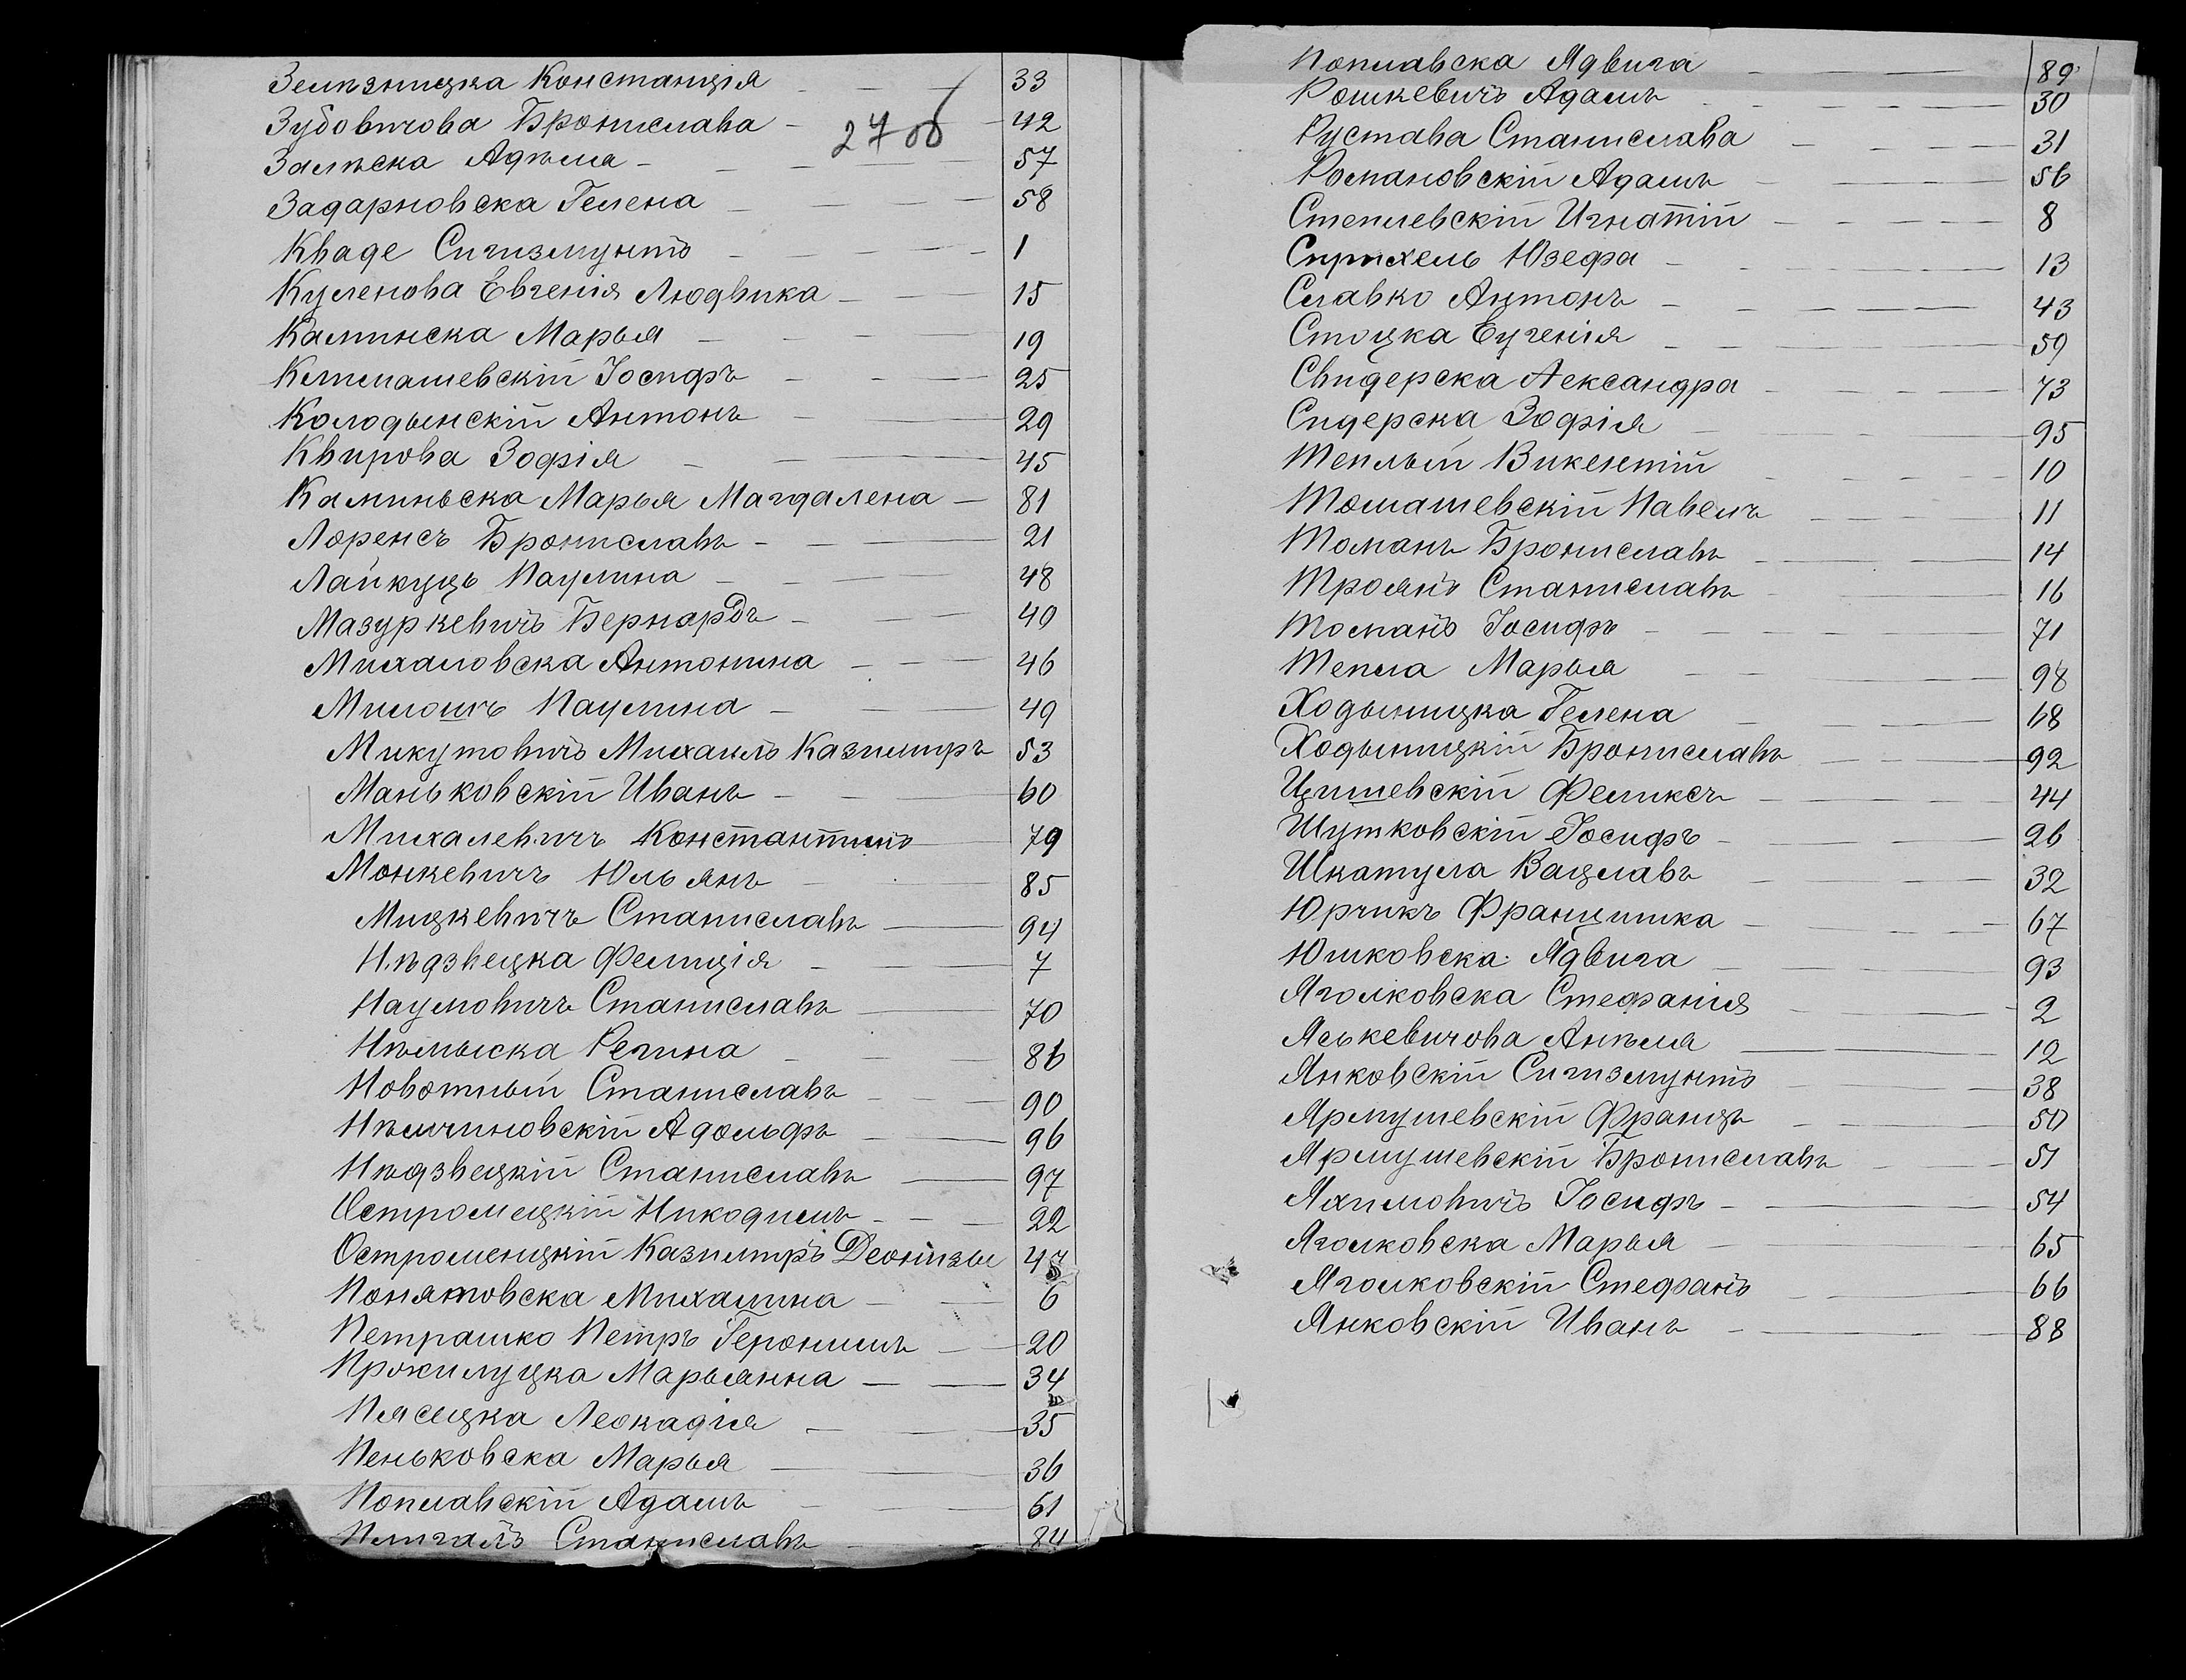 Зелѣзницка Констанція 33
Зубовичова Брониславa 42
27 об
Залѣска Адѣля 57
Задарновска Гелена 58
Кваде Сигизмунтъ 1
Куленова Евгенія Людвика 15
Калинска Марья 19
Климашевскій Іосифъ 25
Колодынскій Антонъ 29
Квирова Зофія 45
Каминьска Марья Магдалена 81
Лоренсъ Брониславъ 21
Лайкуць Паулина 48
Мазуркевичъ Бернардъ 40
Михаловска Антонина 46
Милошъ Паулина 49
Микутовичъ Михаилъ Казимиръ 53
Маньковскій Иванъ 60
Михалевичъ Константинъ 79
Монкевичъ Юльянъ 85
Мицкевичъ Станиславъ 94
Нѣдзвецка Фелиція 7
Наумовичъ Станиславъ 70
Нѣмыска Регина 86
Новотный Станиславъ 90
Нѣмчиновскій Адольфъ 96
Нѣдзвецкій Станиславъ 97
Остромецкій Никодимъ 22
Остроменцкій Казимиръ Деонизы 47
Понятовска Михалина 6
Петрашко Петръ Геронимъ 20
Прокилуцка Марьянна 34
Пясецка Леокадія 35
Пеньковска Марья 36
Поплавскій Адамъ 61
Станиславъ 84
Поплавска Ядвига 89
Рошкевичъ Адамъ 30
Рустава Станислава 31
Романовскій Адамъ 56
Степлевскій Игнатій 8
Сприхель Юзефа 13
Славко Антонъ 43
Стоцка Еугенія 59
Свидерска Александра 73
Сидерска Зофія 95
Теплый Викентій 10
Томашевскій Павелъ 11
Томанъ Брониславъ 14
Троянъ Станиславъ 16
Томанъ Іосифъ 71
Тепла Марья 98
Ходыницка Гелена 68
Ходыницкій Брониславъ 92
Цишевскій Феликсъ 44
Шутковскій Іосифъ 26
Шкатула Вацлавъ 32
Юрчикъ Францишка 67
Юшковска Ядвига 93
Яголковска Стефанія 2
Яськевичова Анѣля 12
Янковскій Сигизмунтъ 38
Ярмушевскій Францъ 50
Ярмушевскій Брониславъ 51
Яхимовичъ Іосифъ 54
Яголковска Марья 65
Яголковскій Стефанъ 66
Янковскій Иванъ 88